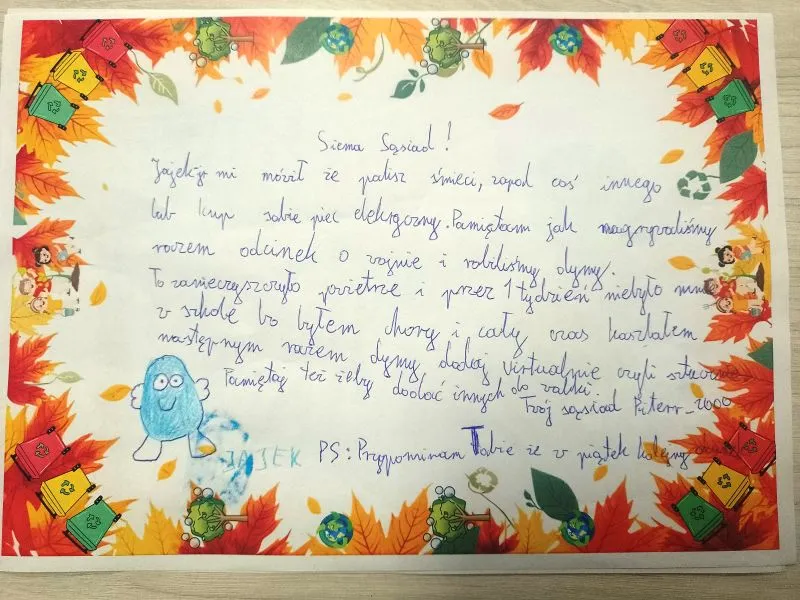 Siema Sąsiad!
Jajek mi mówił że palisz śmieci, zapal coś innego
lub kup sobie piec elektryczny. Pamiętam jak nagrywaliśmy
razem odcinek o wojnie i robiliśmy dymy.
To zanieczyszczyło powietrze i przez 1 tydzień niebyło mnie
w szkole bo byłem chory i cały czas kaszlałem
następnym razem dymy dodaj virtualnie czyli sztucznie
Pamiętaj też żeby dodać innych do walki.
Twój sąsiad Piterr_2000
JAJEK
PS: Przypominam Tobie że w piątek kolejny